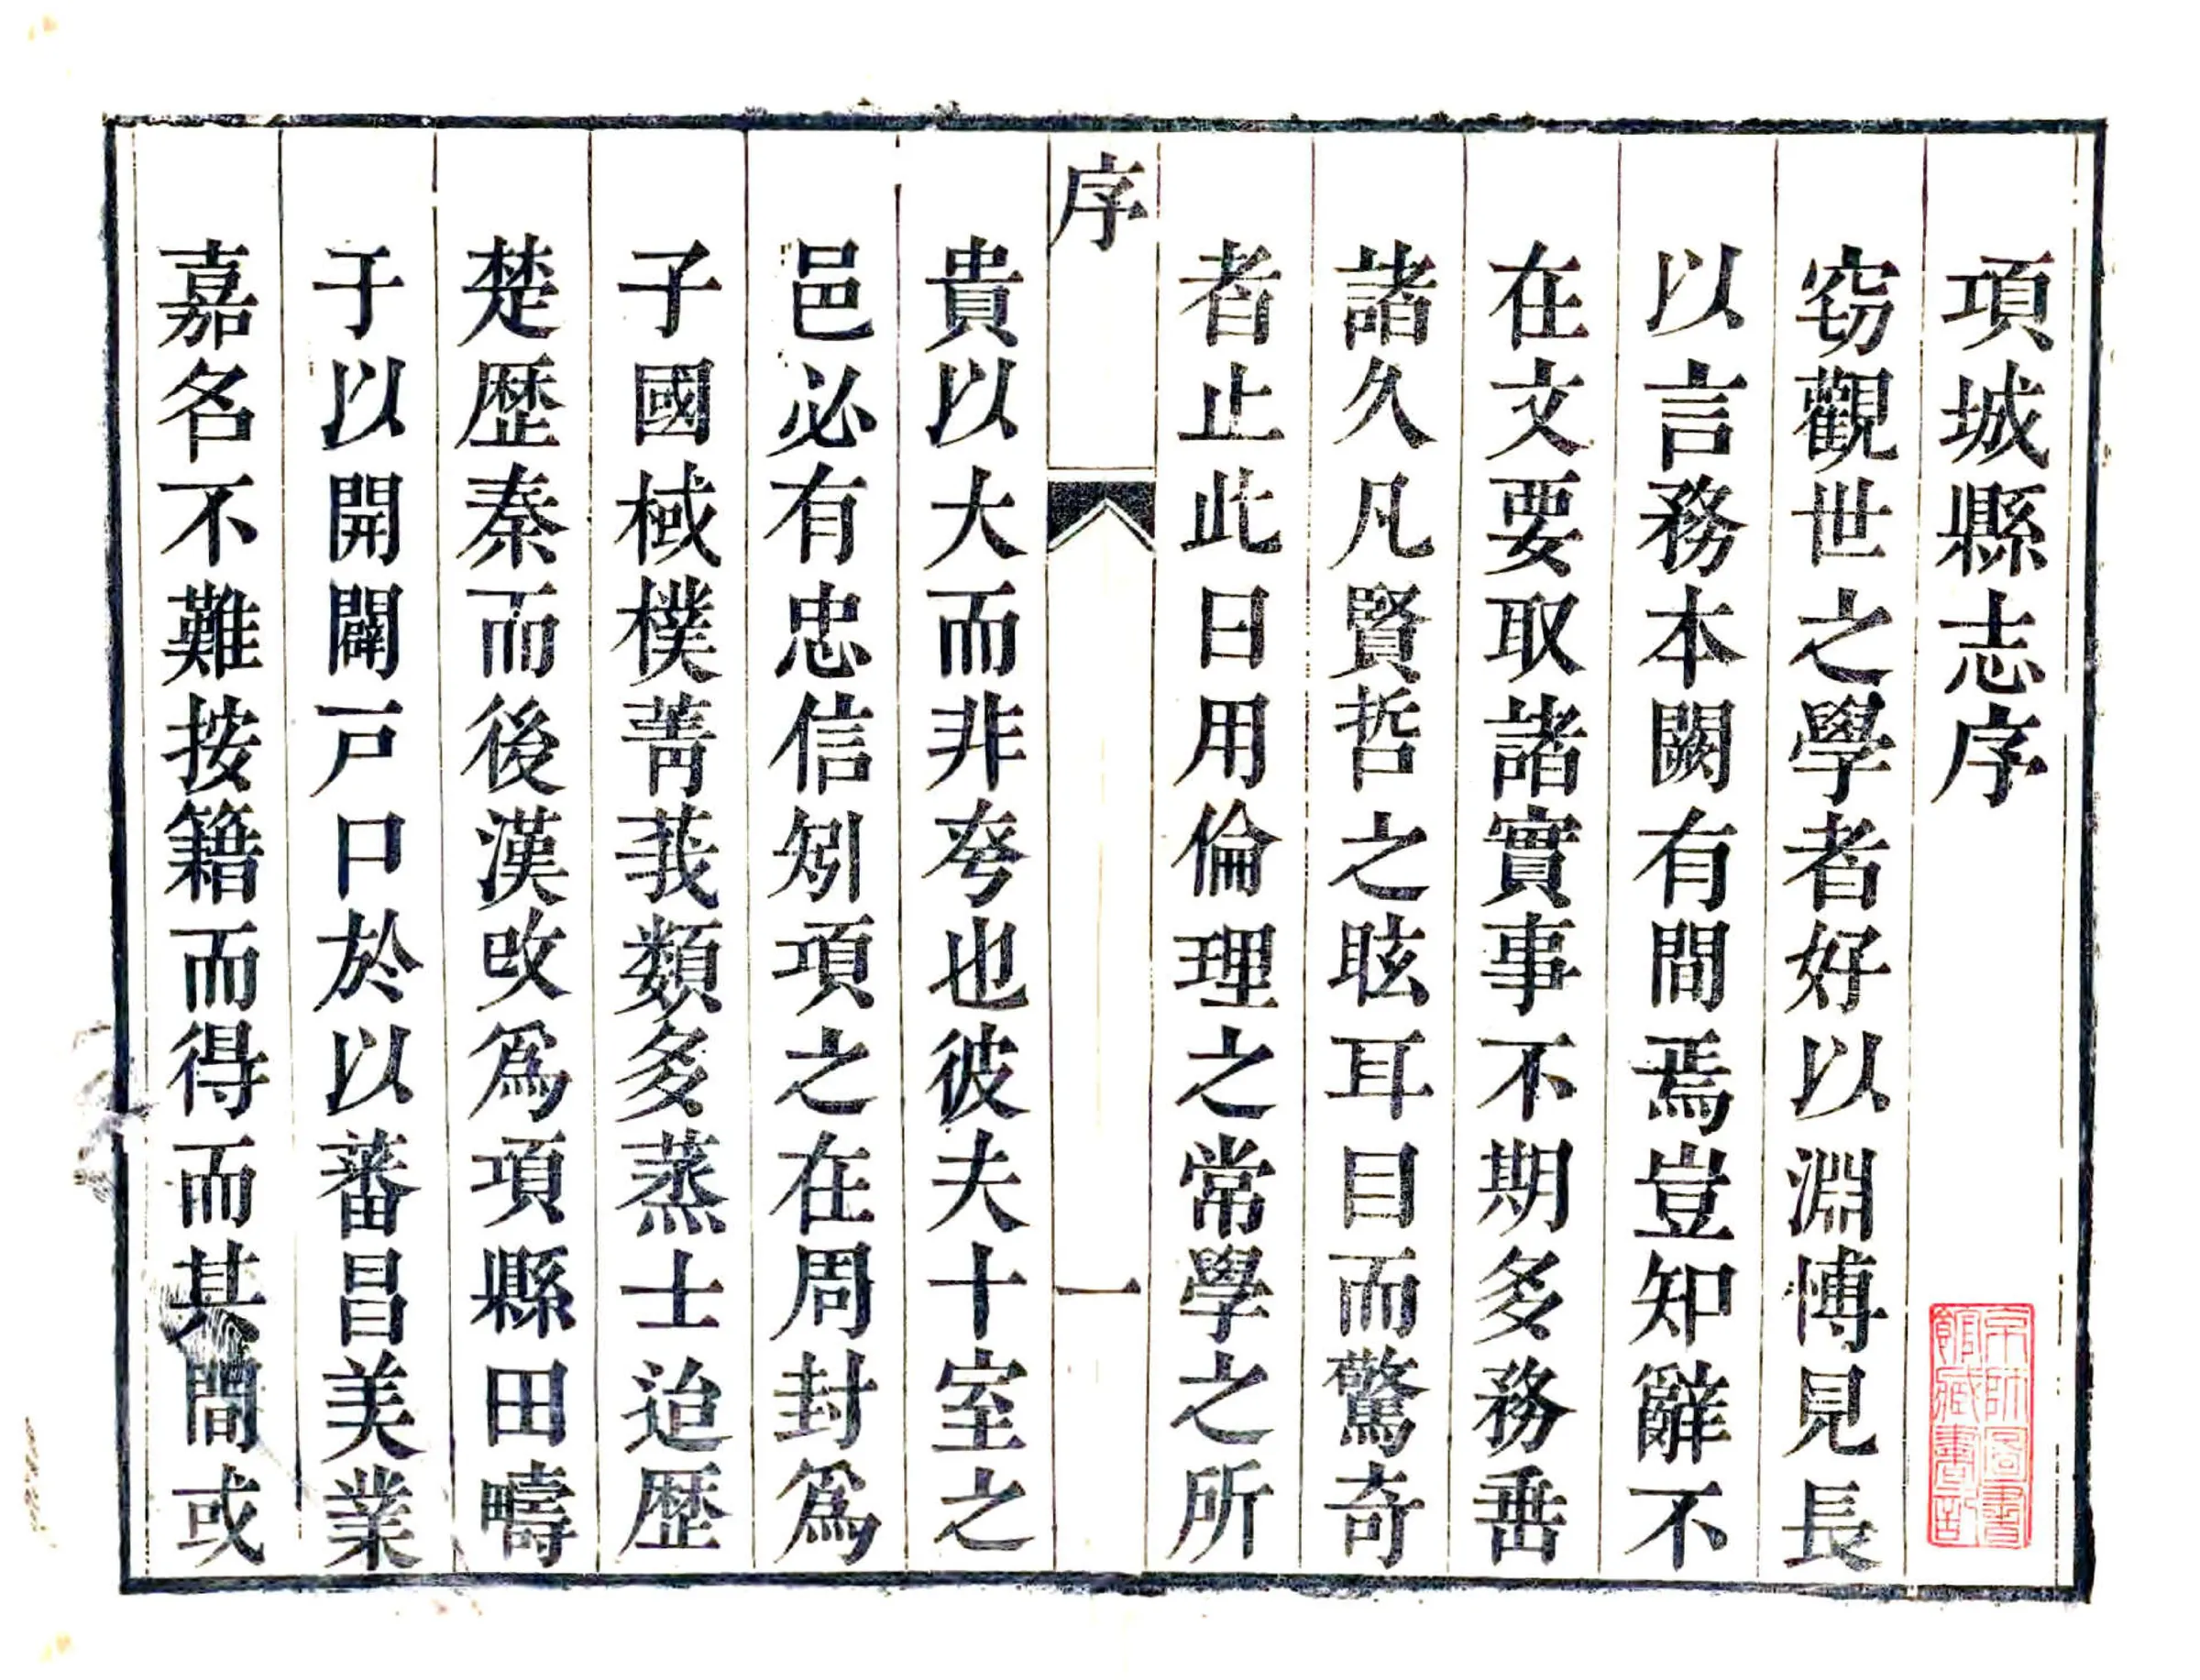 項城縣志序
窃觀世之學者好以淵博見長
以言務本闕有間焉豈知辭不
在文要取諸實事不期多務垂
諸久凡賢哲之眩耳目而驚奇
者止此日用倫理之常學之所
序
一
貴以大而非夸也彼夫十室之
邑必有忠信矧項之在周封爲
子國棫樸菁莪類多蒸士迨歴
楚歴秦而後漢攺爲項縣田疇
于以開闢戸口於以蕃昌美業
嘉名不難按籍而得而其間或